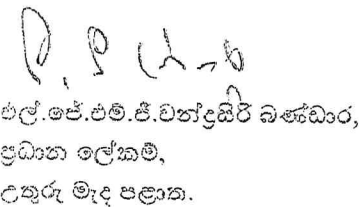 එල්.ජේ.එම්.ජී.චන්ද්‍රසිරි බණ්ඩාර,
ප්‍රධාන ලේකම්,
උතුරු මැද පළාත.